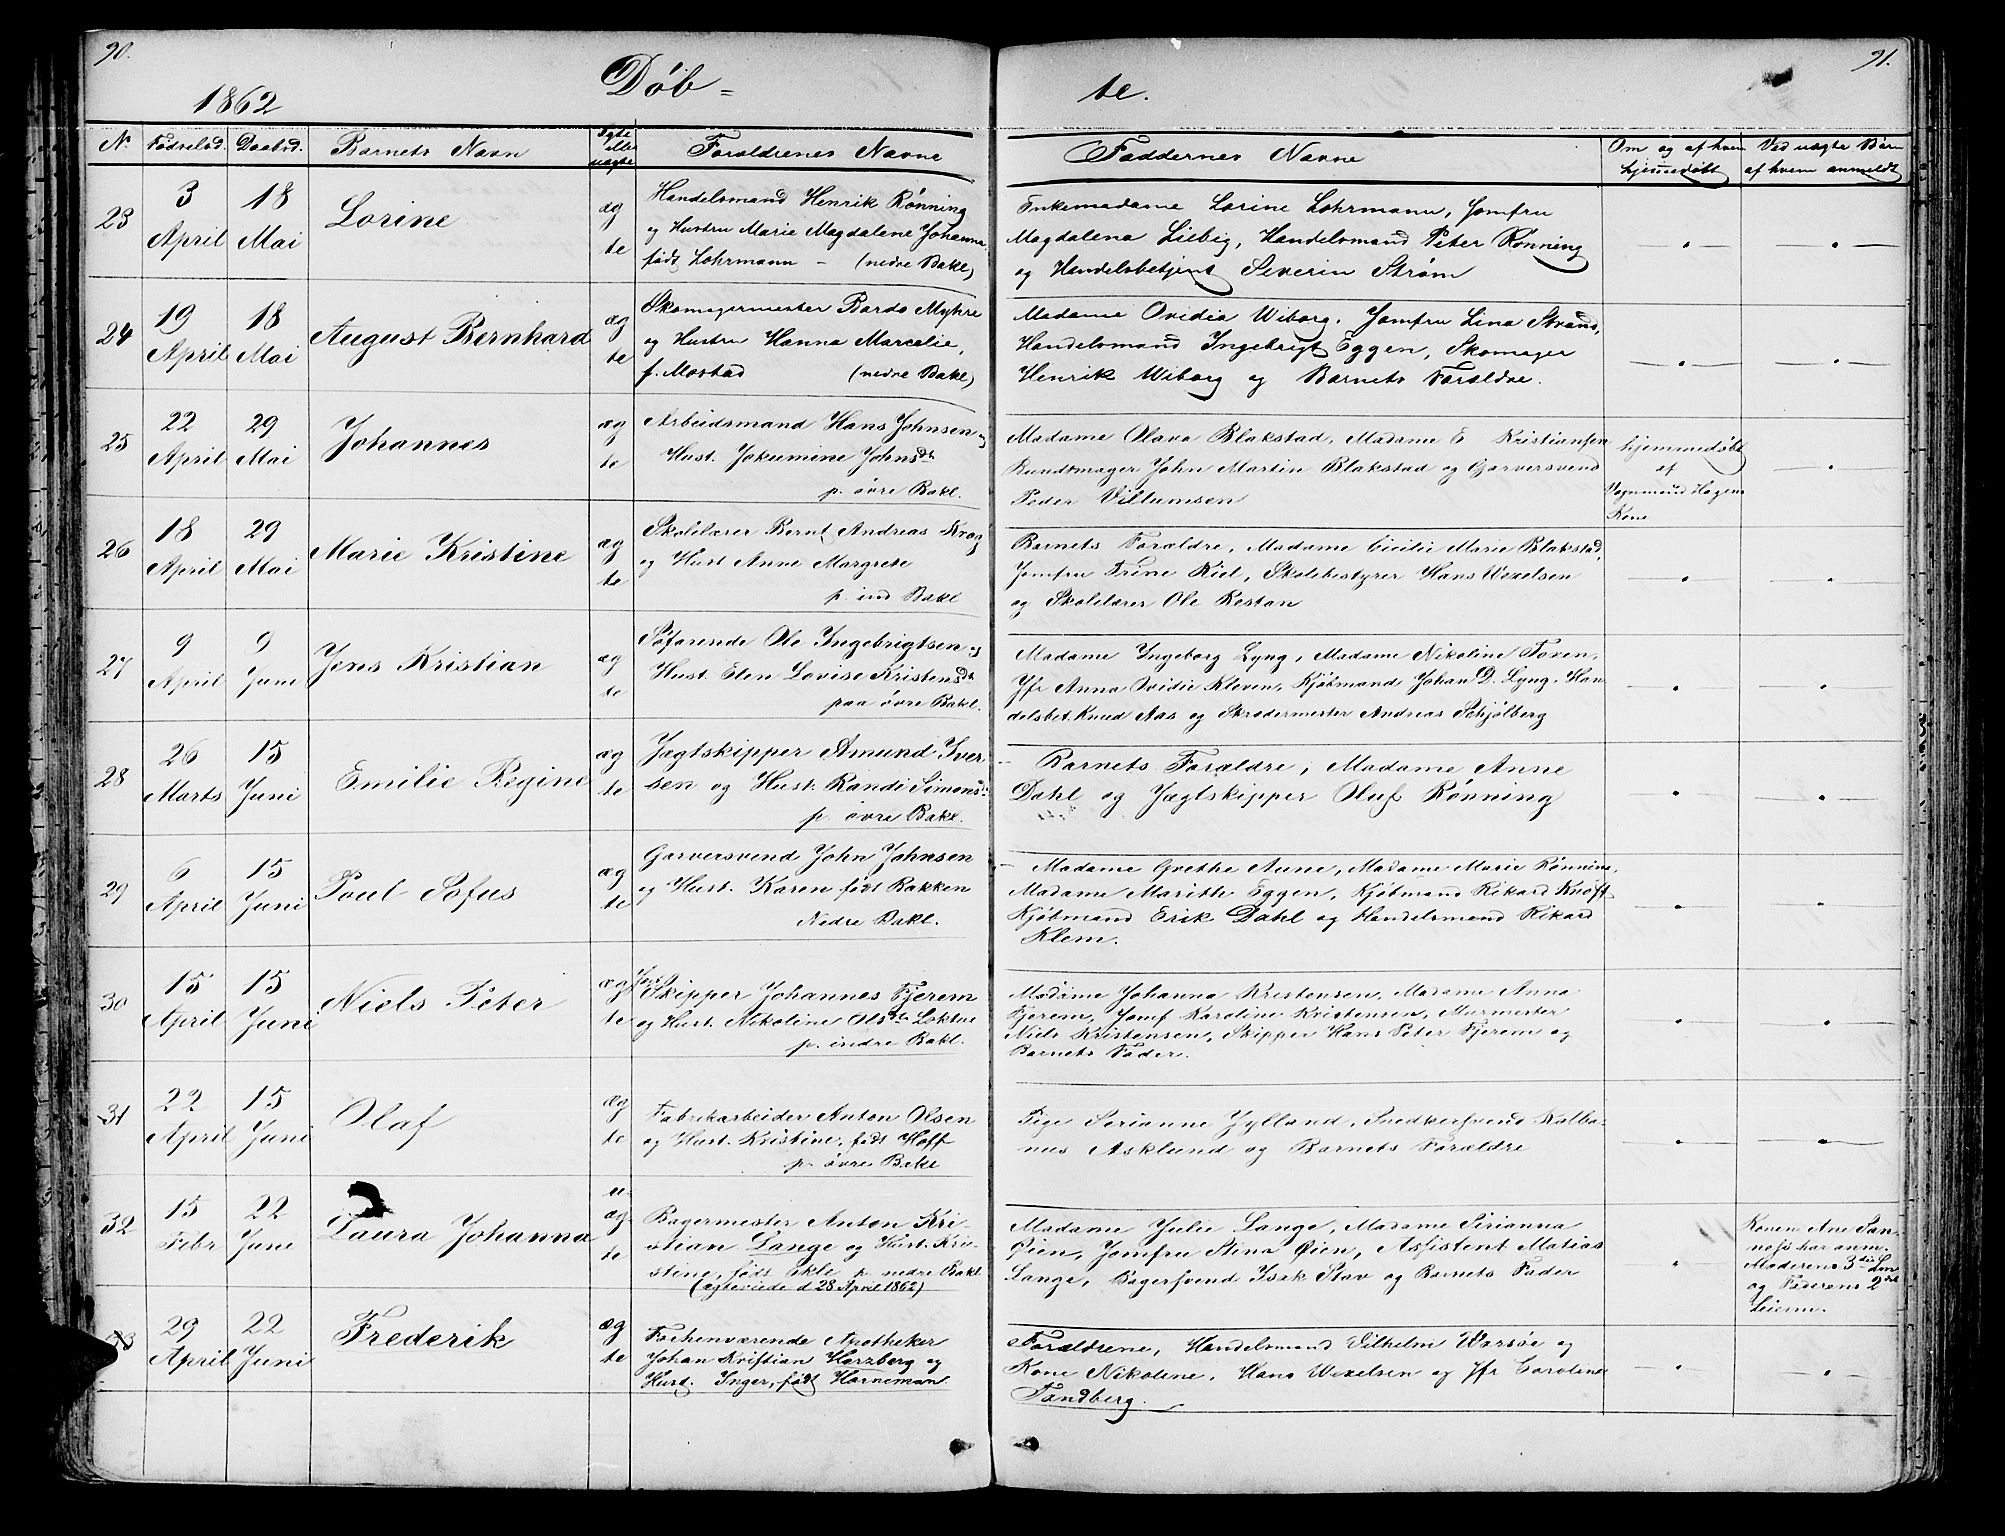 90.
1862
Døb=
N.
Fødselsd.
Daabsd.
Barnets Navn
Ægte eller uægte
Forældrenes Navne
23
3 April
18 Mai
Lorine
æg
te
Handelsmand Henrik Rønning
og Hustru Marie Magdalene Johanna,
født Lohrmann – (nedre Bakl)
24
19 April
18 Mai
August Bernhard
æg
te
Skomagermester Bardo Myhre
og Hustru Hanna Marcelie,
f. Mostad (nedre Bakl)
25
22 April
29 Mai
Johannes
æg
te
Arbeidsmand Hans Johnsen og
Hust. Jokumine Johnsdt
p. øvre Bakl.
26
18 April
29 Mai
Marie Kristine
æg
te
Skolelærer Bernt Andreas Krog
og Hust Anne Margrete
p. ind Bakl
27
9 April
9 Juni
Jens Kristian
æg
te
Søfarende Ole Ingebrigtsen og
Hust. Elen Lovise Kristensdt
paa øvre Bakl.
28
26 Marts
15 Juni
Emilie Regine
æg
te
Jægtskipper Amund Iver-
sen og Hust. Randi Simonsd.
p. øvre Bakl.
29
6 April
15 Juni
Poul Sofus
æg
te
Garversvend John Johnsen
og Hust. Karen født Bakken
Nedre Bakl.
30
15 April
15 Juni
Niels Peter
æg
te
Skipper Johannes Fjerem
og Hust. Nikoline Olsdt Loktue
p. indre Bakl.
31
22 April
15 Juni
Olaf
æg
te
Fabrikarbeider Anton Olsen
og Hust. Kristine, født Hoff
p. øvre Bakl
32
15 Febr
22 Juni
Laura Johanna
u-
æg
te
Bagermester Anton Kri-
stian Lange og Hust. Kri-
stine, født Ekle p. nedre Bakl
(ægteviede d 28 April 1862)
33
29 April
22 Juni
Frederik
æg
te
Forhenværende Apotheker
Johan Kristian Harzberg og
Hust. Inger, født Horneman
91.
te.
Faddernes Navne
Om og af hvem hjemmedøbt
Ved uægte Børn af hvem anmeldt
Enkemadame Lorine Lohrmann, Jomfru
Magdalena Liebig, Handelsmand Peter Rønning
og Handelsbetjent Severin Strøm
Madame Ovidia Wiborg, Jomfru Lina Strand,
Handelsmand Ingebrigt Eggen, Skomager
Henrik Wiborg og Barnets Forældre.
Madame Olava Blakstad, Madame E Kristiansen
Bundtmager John Martin Blakstad og Garversvend
Peder Villumsen
hjemmedøbt
af
Vognmand Hagens
Kone
Barnets Forældre, Madame Cicilie Marie Blakstad,
Jomfru Trine Kiel, Skolebestyrer Hans Wexelsen
og Skolelærer Ole Restan
Madame Ingeborg Lyng, Madame Nikoline Foxen,
Jfr Anna Ovidie Kleven, Kjøbmand Johan D. Lyng, Han-
delsbet. Knud Aas og Skrædermester Andreas Schjølberg
Barnets Forældre, Madame Anne
Dahl og Jægtskipper Oluf Rønning
Madame Grethe Aune, Madame Marie Rønning,
Madame Marith Eggen, Kjøbmand Rikard Knoff
Kjøbmand Erik Dahl og Handelsmand Rikard
Klem.
Madame Johanna Kristensen, Madame Anna
Fjerem, Jomf Karoline Kristensen, Murmester
Niels Kristensen, Skipper Hans Peter Fjerem og
Barnets Fader.
Pige Serianne Jylland, Snedkersvend Kolbe-
nus Asklund og Barnets Forældre
Madame Julie Lange, Madame Sirianna
Øien, Jomfru Stina Øien, Assistent Matias
Lange, Bagersvend Isak Stav og Barnets Fader
Konen Ane
har anm.
Moderens 3die
og Faderens 2det
Leierm.
Forældrene, Handelsmand Vilhelm Warsøe og
Kone Nikoline, Hans Wexelsen og Jfr Caroline
Sandberg.